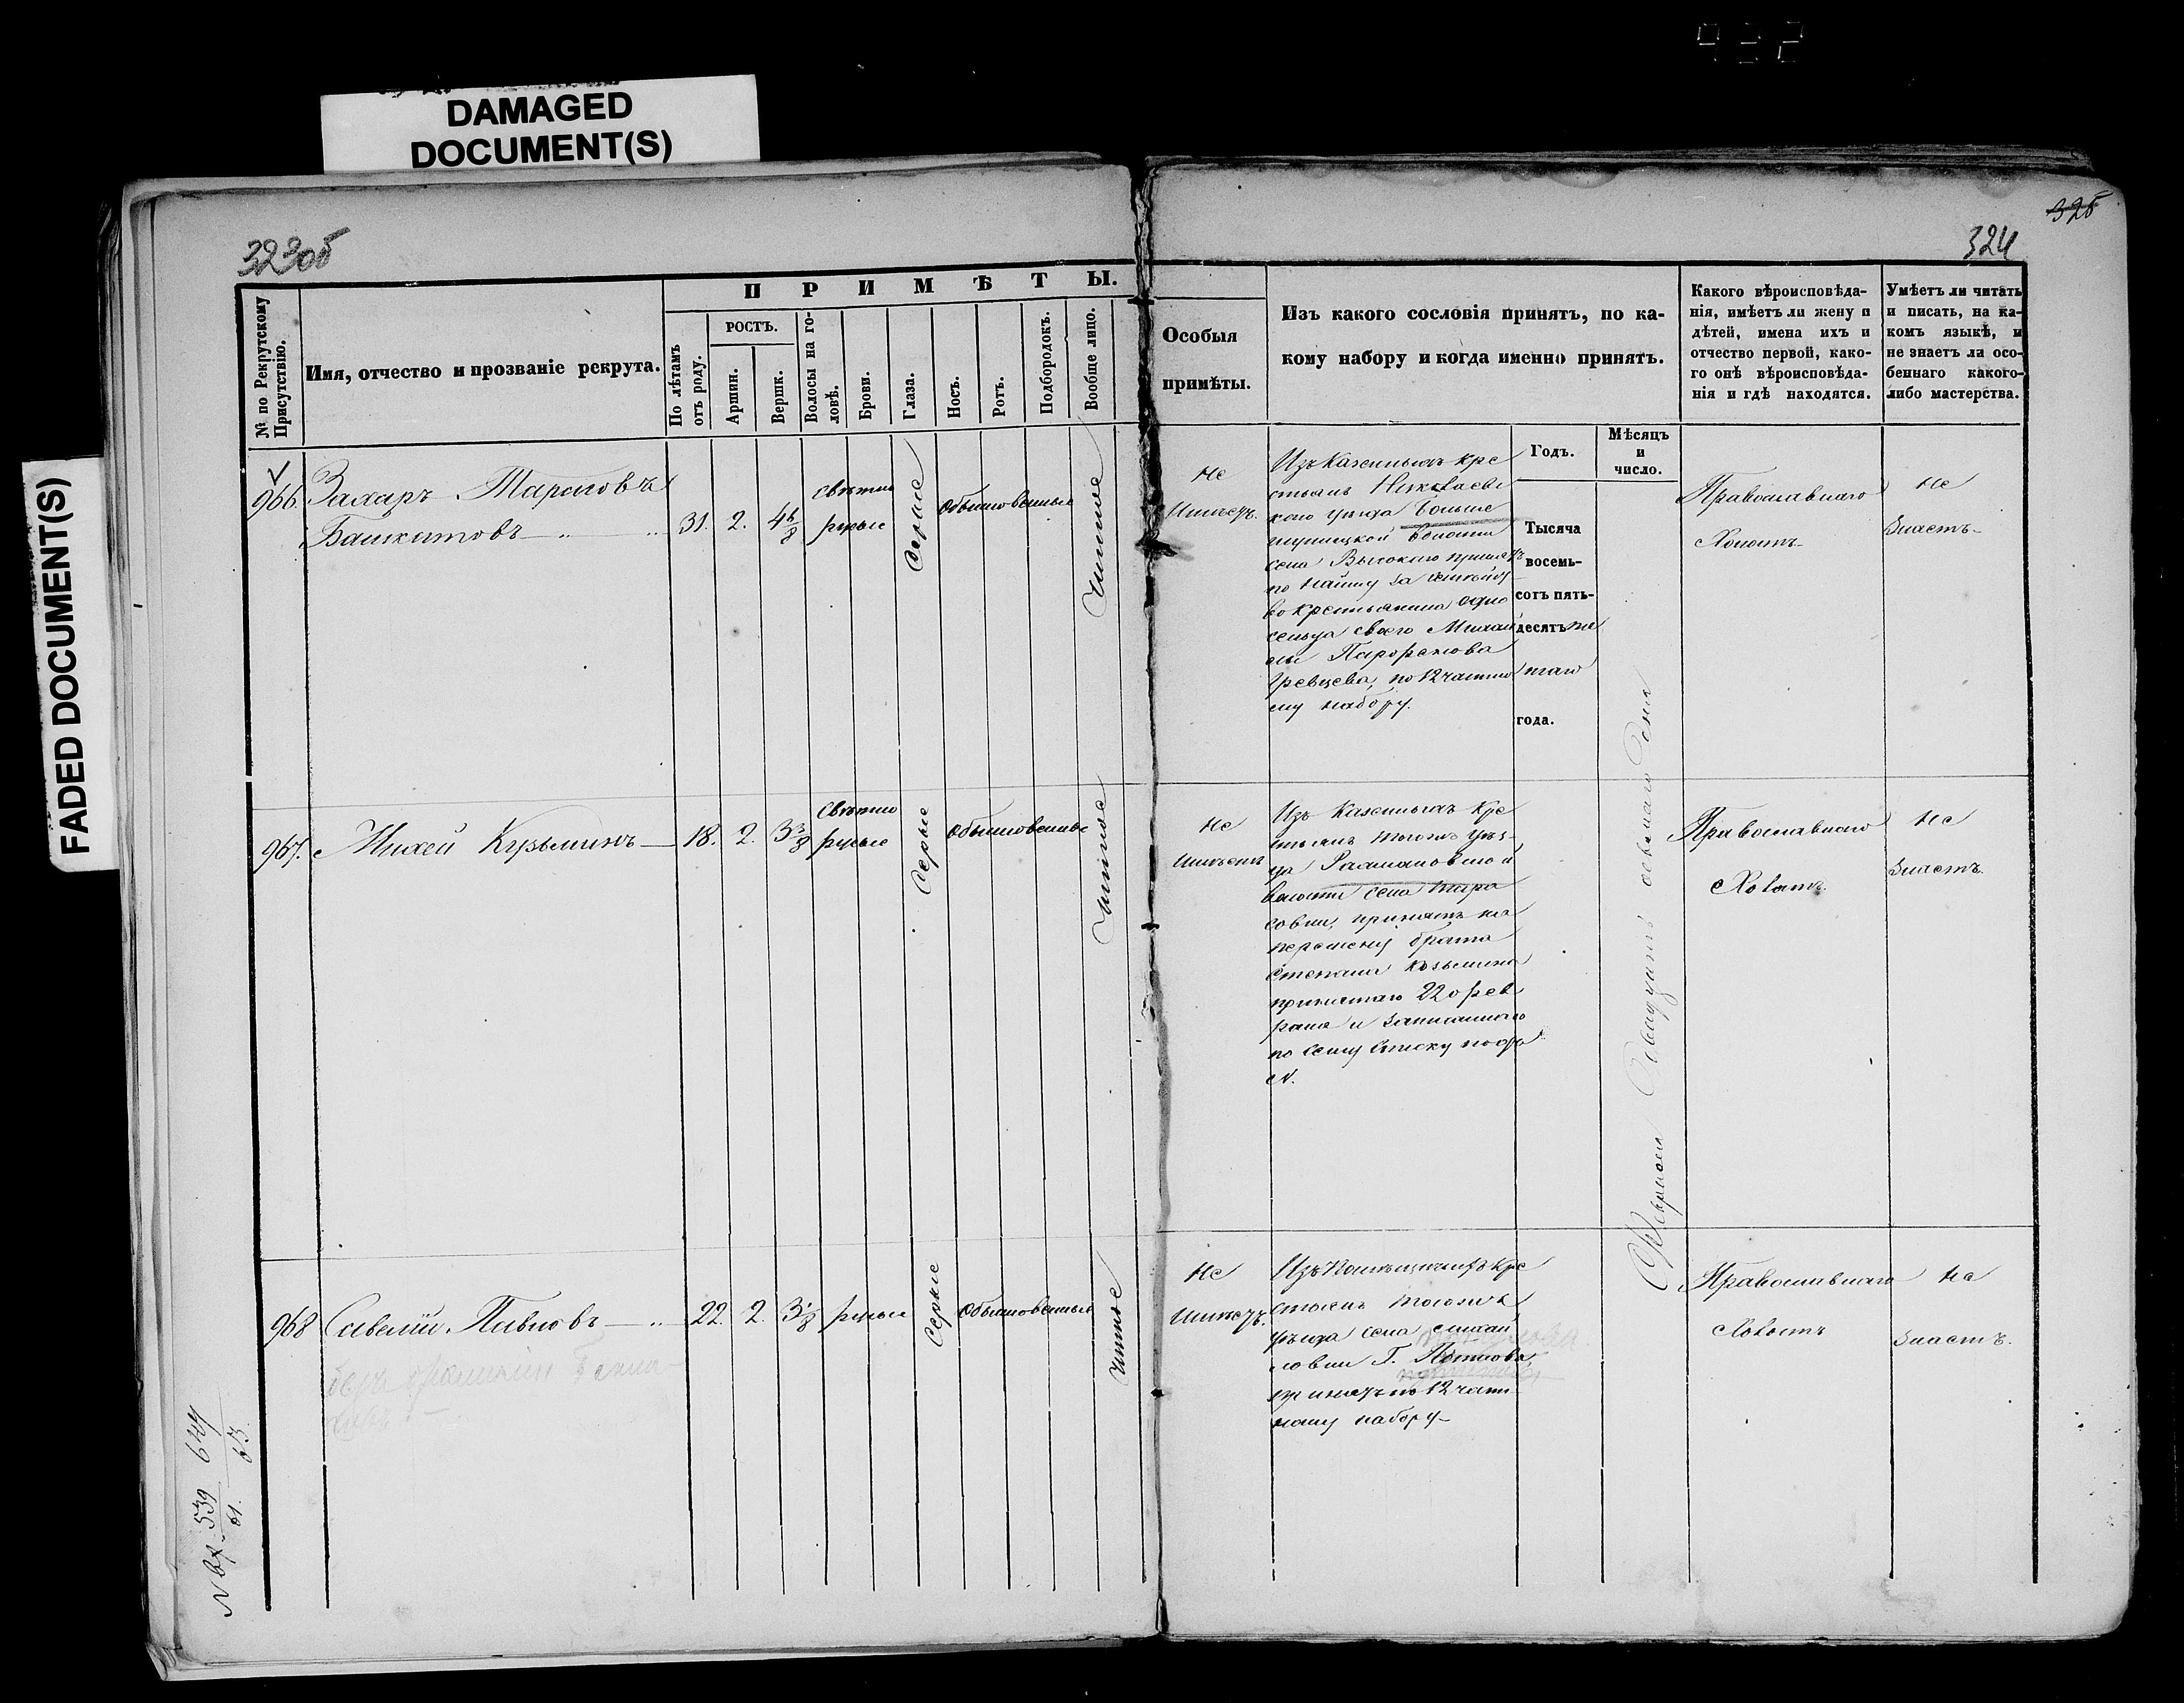 932
DAMAGED
DOCUMENT(S)
FADED DOCUMENT(S)
323об
325
324
№ по Рекрутскому Присутствію.
Имя, отчество и прозваніе рекрута.
ПРИМѢТЫ.
По лѣтамъ отъ роду.
РОСТЪ.
Аршин.
Вершк.
Волосы на головѣ.
Брови.
Глаза.
Носъ.
Ротъ.
Подбородокъ.
Вообще лицо.
Особыя
примѣты.
Изъ какого сословія принятъ, по ка-
кому набору и когда именно принятъ.
Какого вѣроисповѣда-
нія, имѣетъ ли жену и
дѣтей, имена ихъ и
отчество первой, како-
го онѣ вѣроисповѣда-
нія и гдѣ находятся.
Умѣетъ ли читать
и писать, на ка-
комъ языкѣ, и
не знаетъ ли осо-
беннаго какого-
либо мастерства.
Годъ.
Мѣсяцъ
и
число.
966.
Захаръ Тарасовъ
Башкатовъ
31. 2. 4 6/8
свѣтло
русые
Серые
Обыкновенные
Чистое
Не
Имѣетъ.
Изъ Казенныхъ кре
стьянъ Николаевс
каго уѣзда Больше
волости
села Высокаго принятъ
по найму за
крестьянина одно
сельца своего Михаи
лы Парфенова
Гревцева, по 12 частно
му набору.
Тысяча
восемь-
сотъ пять-
десятъ пя
таго
года.
Февраля двадцать осьмаго дня
Православнаго
Холостъ
Не
Знаетъ
967.
Михей Кузьминъ
18. 2. 3 3/8
Свѣтло
русые
Серые
Обыкновенные
Чистое
Не
Имѣетъ
Изъ Казенныхъ Кре
стьянъ тогожъ уѣз-
да Рахмановской
волости села Тара
совки, принятъ на
перемену брата
Степана Козьмина
принятаго 22 фев
раля и записаннаго
по сему списку подъ
N.
Православнаго
Холостъ
Не
Знаетъ.
968
Савелий Павловъ
22. 2. 3 1/8
русые
Серые
Обыкновенные
Чистое
Не
Имѣетъ.
Изъ Помѣщичьихъ Кре
стьянъ тогожъ
уѣзда села Михай
ловки Г.
принятъ по 12 част
ному набору
Православнаго
Холостъ
Не
Знаетъ.
539
61.
647
63.